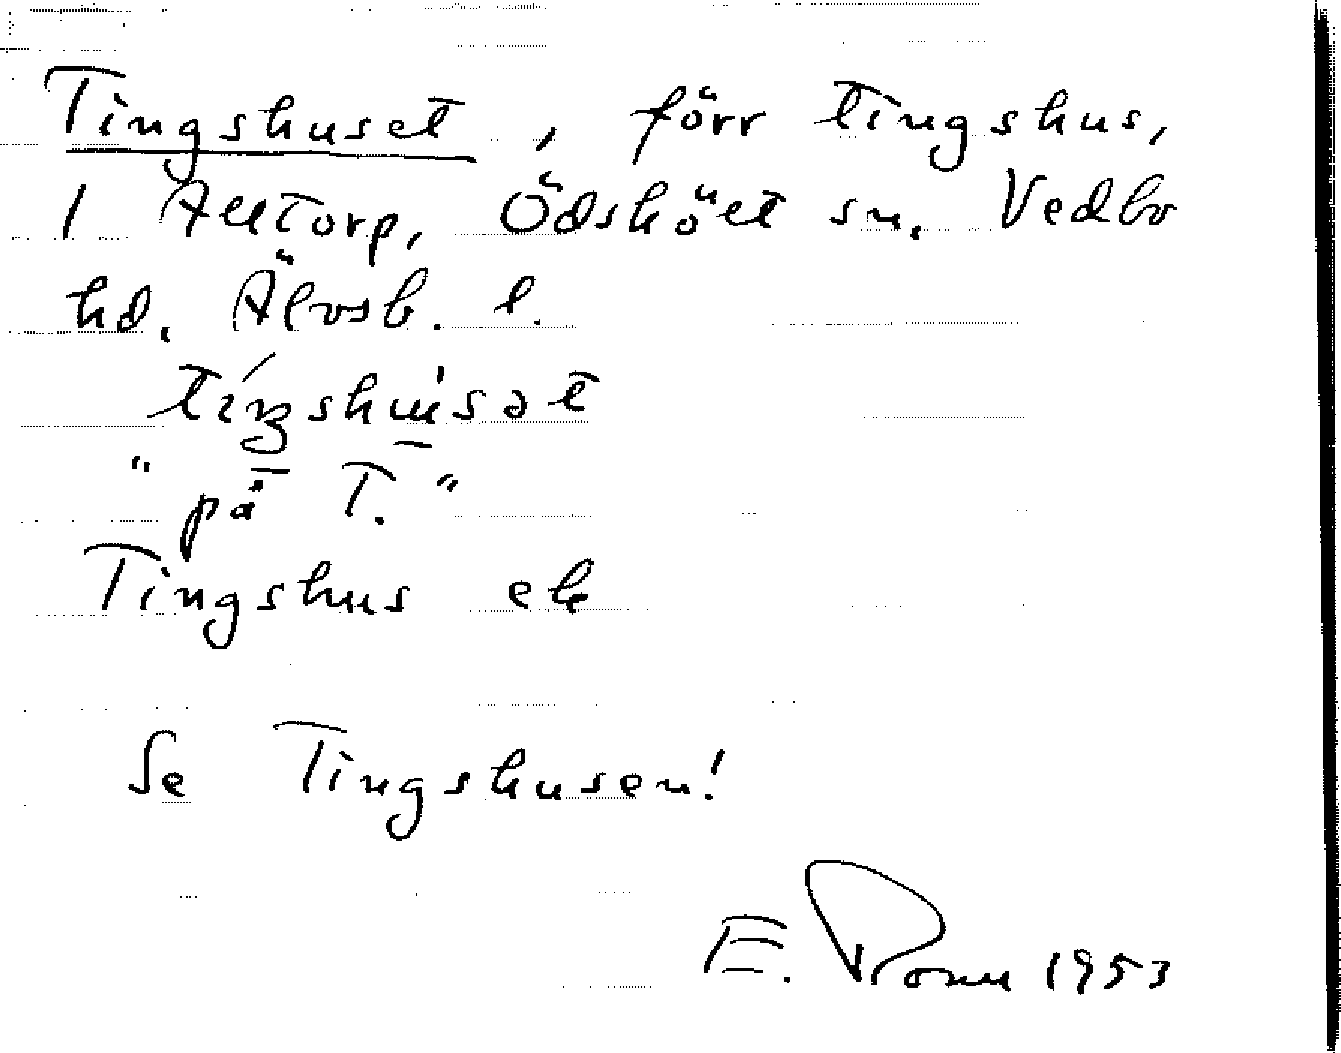 Tingshuset, förr tingshus,
1 Alltorp, Ödsköllt sn. Vedbo
hd. Älvsb. l.
tíŋshu̱̍sət
"på T."
Tingshus ek
Se Tingshusen!
E. 1953